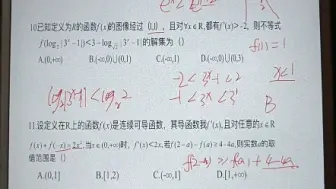 f(1)=1
10.已知定义为R的函数f(x)的图像经过(1,1),且对∀x∈R,都有f'(x)>-2,则不等式
f(log₂|3ˣ-1|)<3-log_{√2}|3ˣ-1|的解集为()
A.(0,+∞) B.(-∞,0)∪(0,1) C.(-∞,1) D.(-∞,0)∪(0,3)
log₂|3ˣ-1|<log₂2
-2<3ˣ-1<2
x<1
-1<3ˣ<3¹
B
11.设定义在R上的函数f(x)是连续可导函数,其导函数我f'(x),且对任意的x∈R
f(x)+f(-x)=2x²,当x∈(0,+∞)时,f'(x)<2x,若f(2-a)-f(a)≥4-4a,则实数a的取
值范围是()
f(2-a)≥f(a)+4-4a
A.[0,1] B.[1,2) C.(-∞,1] D.[1,+∞)